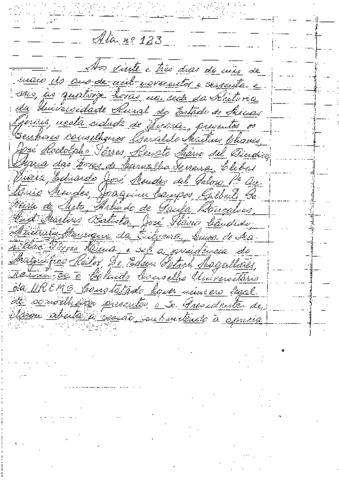 Ata nº 123
Aos vinte e três dias do mês de
maio do ano de mil novecentos e sessenta e
seis, às quatorze horas, na sede da Reitoria
da Universidade Rural do Estado de Minas
Gerais, nesta cidade de Viçosa, presentes os
Senhores conselheiros Geraldo Martins Chaves,
José Rodolpho Torres, Renato Mário del
Maria das Dores de Carvalho Ferreira, Clibas
Vieira, Eduardo José Mendes del
Mendes, Joaquim Campos, Gilberto
de Melo, Arlindo de Paula Gonçalves,
Martins Batista, José Flávio Cândido,
da Silveira,
e sob a presidência do
Magnífico Reitor, Dr. Edson Potsch Magalhães,
reuniu-se o Colendo Conselho Universitário
da UREMG. Constatado haver número legal
de conselheiros presentes o Sr. Presidente de-
clarou aberta a sessão, submetendo à aprecia